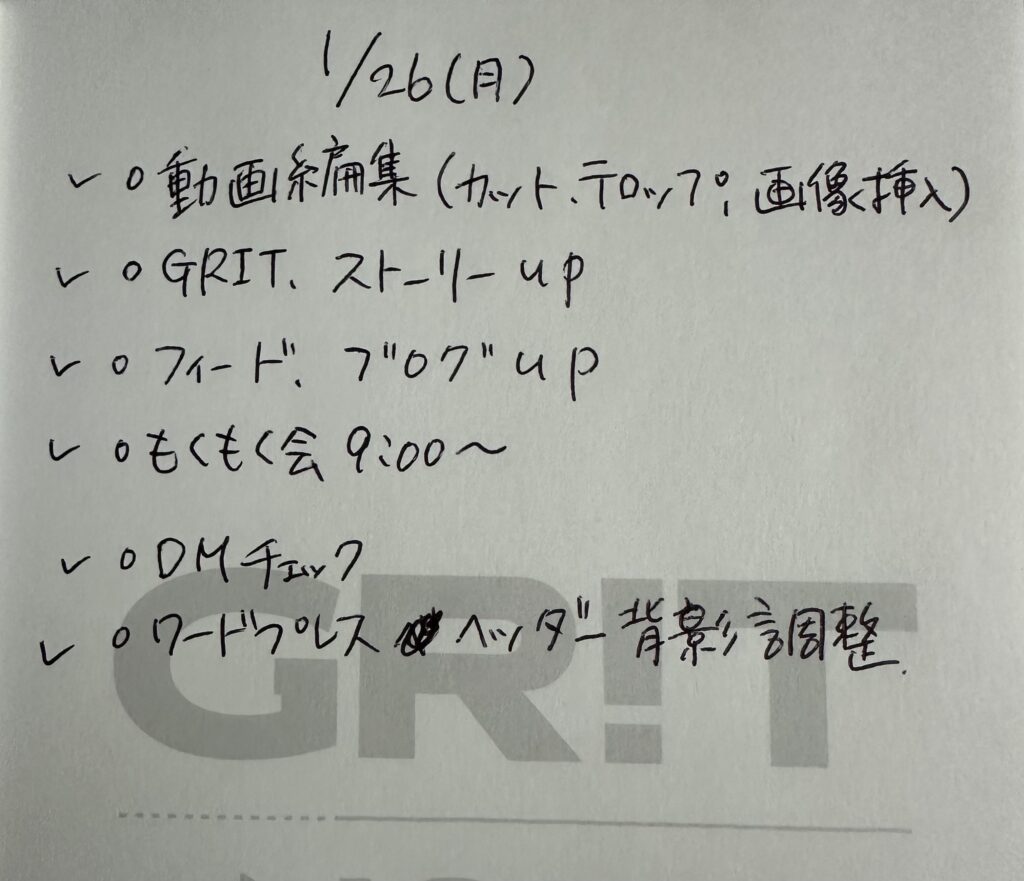 1/26(月)
✓ ○ 動画編集(カット、テロップ, 画像挿入)
✓ ○ GRIT、ストーリーup
✓ ○ フィード、ブログup
✓ ○ もくもく会 9:00〜
✓ ○ DMチェック
✓ ○ ワードプレス ヘッダー背影調整.
GR!T